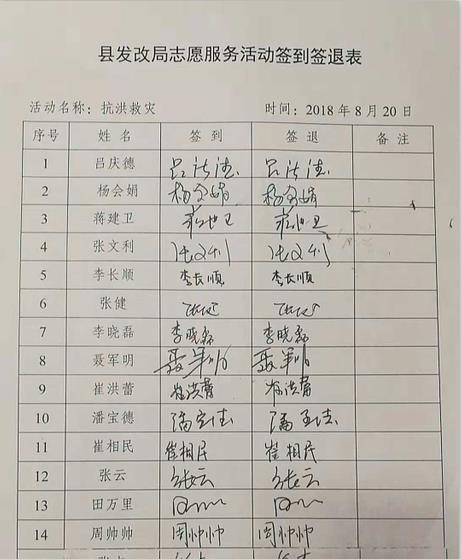 县发改局志愿服务活动签到签退表
活动名称：抗洪救灾 时间：2018年8月20日
序号 姓名 签到 签退 备注
1 吕庆德 吕庆德 吕庆德
2 杨会娟 杨会娟 杨会娟
3 蒋建卫 蒋建卫 蒋建卫
4 张文利 张文利 张文利
5 李长顺 李长顺 李长顺
6 张健 张健 张健
7 李晓磊 李晓磊 李晓磊
8 聂军明 聂军明 聂军明
9 崔洪蕾 崔洪蕾 崔洪蕾
10 潘宝德 潘宝德 潘宝德
11 崔相民 崔相民 崔相民
12 张云 张云 张云
13 田万里
14 周帅帅 周帅帅 周帅帅